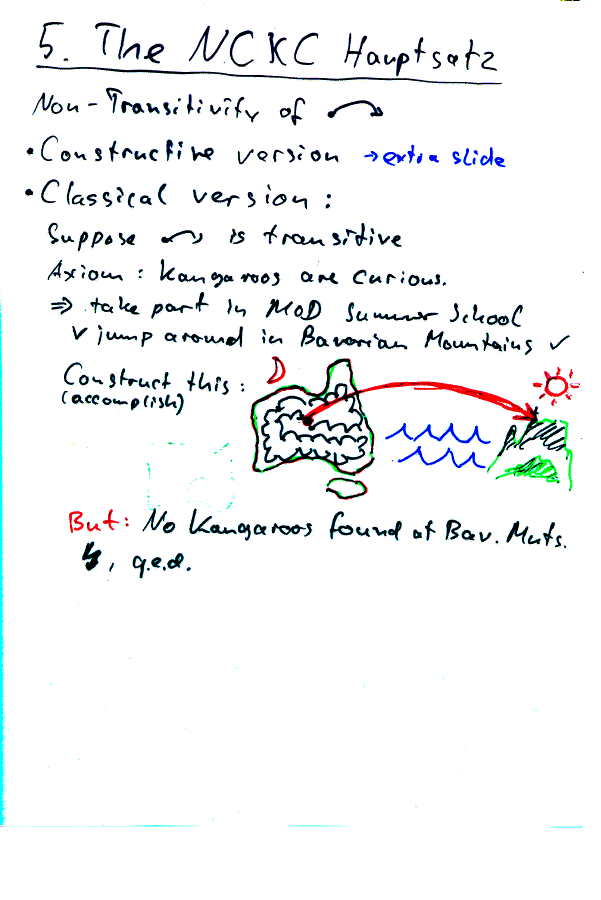 5. The NCKC Hauptsatz
Non-Transitivity of
• Constructive version → extra slide
• Classical version:
Suppose is transitive
Axiom: Kangaroos are curious.
⇒ take part in MOD Summer School
∨ jump around in Bavarian Mountains ✓
Construct this:
(accomplish)
But: No Kangaroos found at Bav. Mnts.
↯, q.e.d.